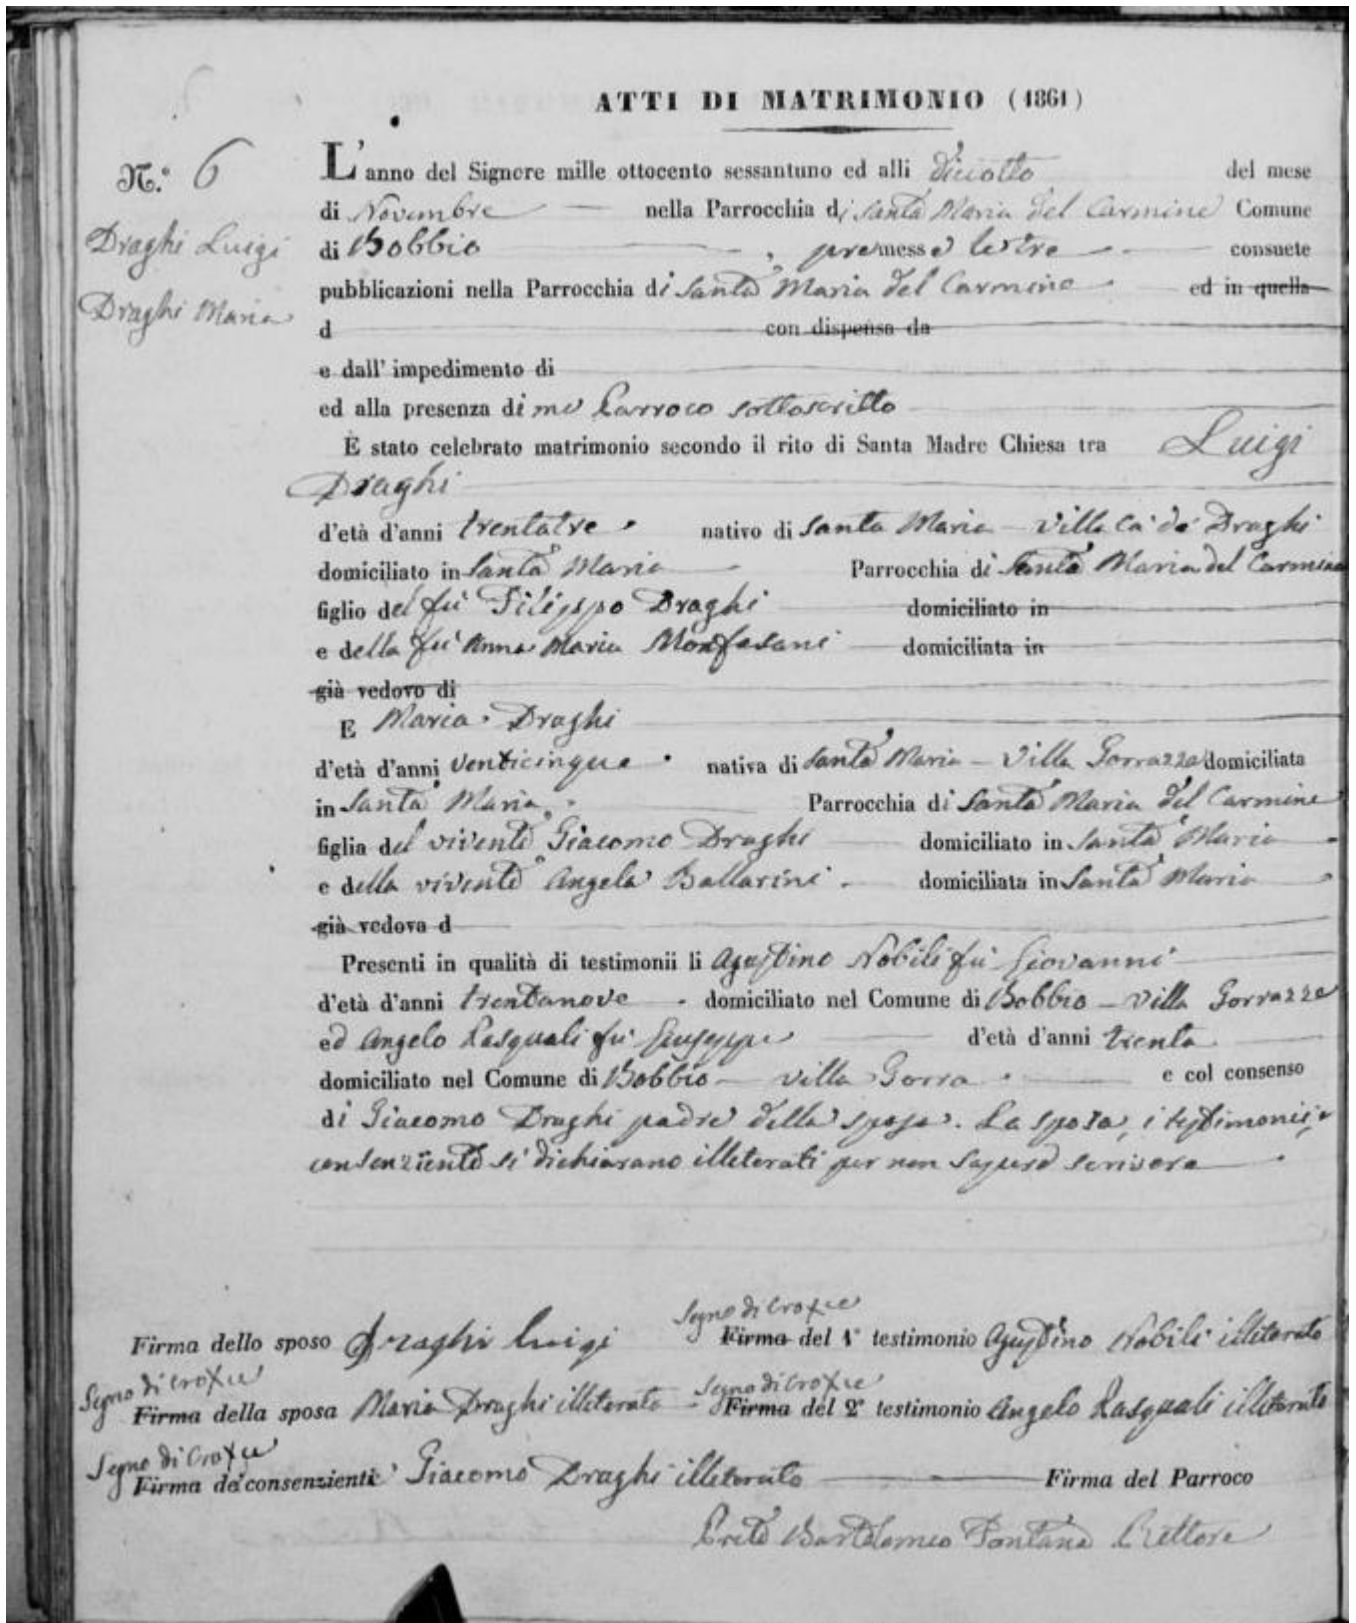 ATTI DI MATRIMONIO (1861)
N.° 6
Draghi Luigi
Draghi Maria
L'anno del Signore mille ottocento sessantuno ed alli diciotto del mese
di Novembre nella Parrocchia di Santa Maria del Carmine Comune
di Bobbio , premesse le tre consuete
pubblicazioni nella Parrocchia di Santa Maria del Carmine ed in quella
d con dispensa da
e dall' impedimento di
ed alla presenza di me Parroco sottoscritto
È stato celebrato matrimonio secondo il rito di Santa Madre Chiesa tra Luigi
Draghi
d'età d'anni trentatre nativo di Santa Maria - Villa Cà de Draghi
domiciliato in Santa Maria Parrocchia di Santa Maria del Carmine
figlio del fù Filippo Draghi domiciliato in
e della fù Anna Maria Monfasani domiciliata in
già vedovo di
E Maria Draghi
d'età d'anni venticinque nativa di Santa Maria - Villa Gorrazze domiciliata
in Santa Maria Parrocchia di Santa Maria del Carmine
figlia del vivente Giacomo Draghi domiciliato in Santa Maria
e della vivente Angela Ballarini domiciliata in Santa Maria
già vedova d
Presenti in qualità di testimonii li Agustino Nobili fù Giovanni
d'età d'anni trentanove domiciliato nel Comune di Bobbio - Villa Gorrazze
ed Angelo Pasquali fù Giuseppe d'età d'anni trenta
domiciliato nel Comune di Bobbio - villa Gorra e col consenso
di Giacomo Draghi padre della sposa. La sposa, i testimonii, e
consenziente si dichiarano illeterati per non sapere scrivere
Firma dello sposo Draghi Luigi
Segno di Croce
Firma del 1° testimonio Agustino Nobili illiterato
Segno di croce
Firma della sposa Maria Draghi illiterata
Segno di Croce
Firma del 2° testimonio Angelo Pasquali illiterato
Segno di Croce
Firma de' consenziente Giacomo Draghi illeterato Firma del Parroco
Prete Bartolomeo Fontana Rettore